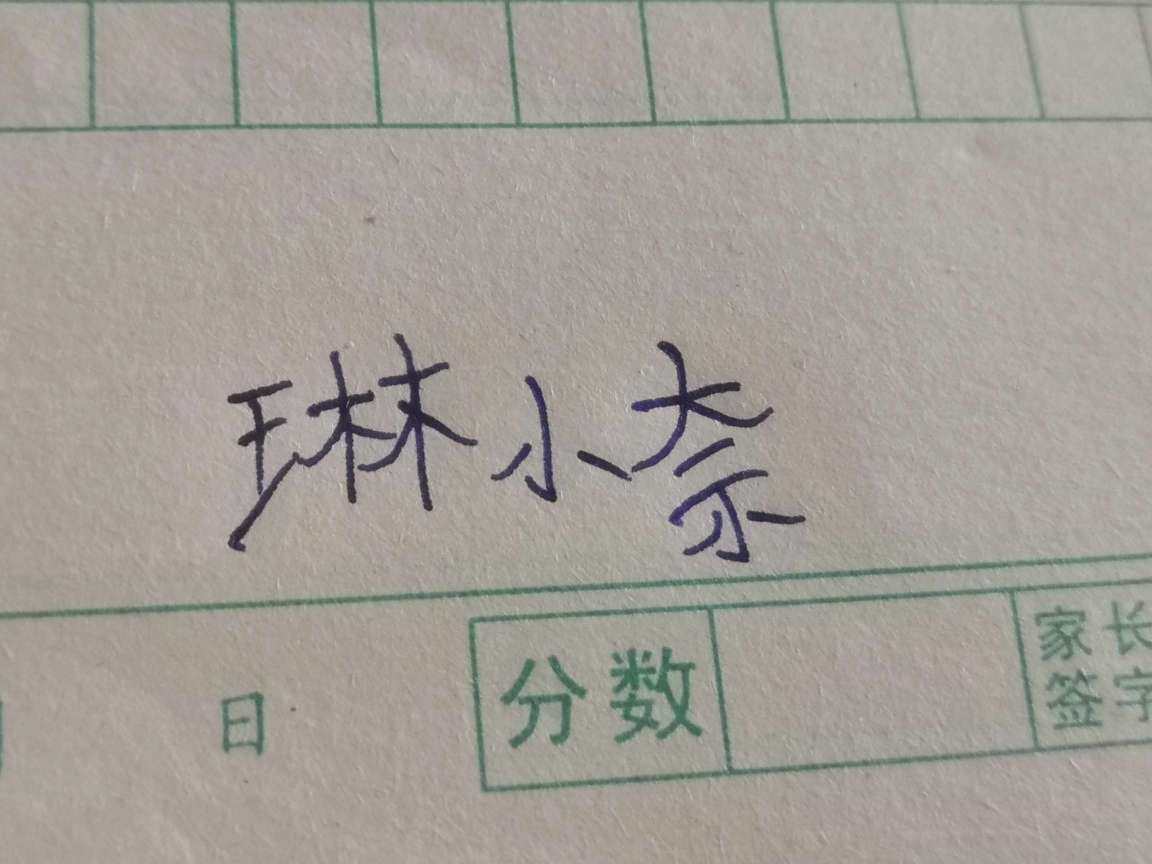 琳小奈
日 分数 家长
签字